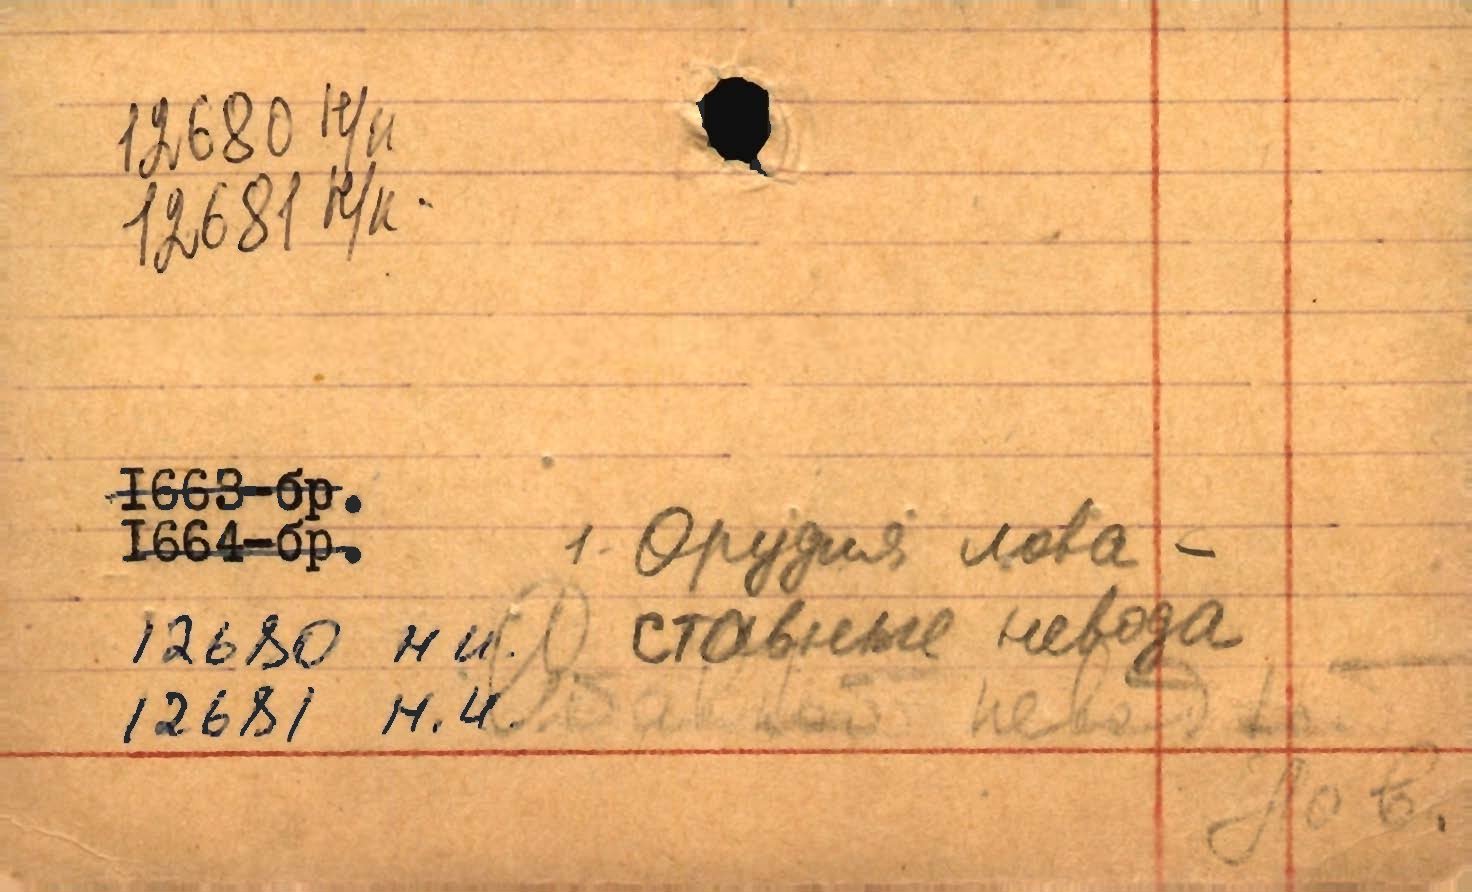 12680 н/и
12681 н/и.
I663-бр.
I664-бр.
1. Орудия лова -
12680 н и. ставные невода
12681 н.и. Ставной невод
лов.